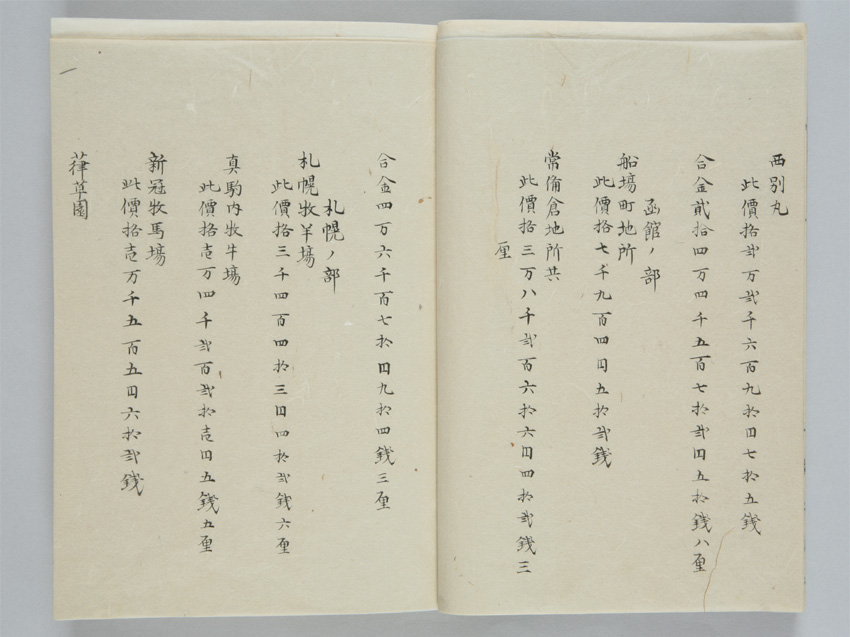 西別丸
此價格弐万弐千六百九拾円七拾五錢
合金貳拾四万四千五百七拾弐円五拾錢八厘
函館ノ部
船塲町地所
此價格七千九百四円五拾弐錢
常備倉地所共
此價格三万八千弐百六拾六円四拾弐錢三
厘
合金四万六千百七拾円九拾四錢三厘
札幌ノ部
札幌牧羊塲
此價格三千四百四拾三円四拾弐錢六厘
真駒内牧牛塲
此價格壱万四千弐百弐拾壱円五錢五厘
新冠牧馬塲
此價格壱万千五百五円六拾弐錢
葎草園